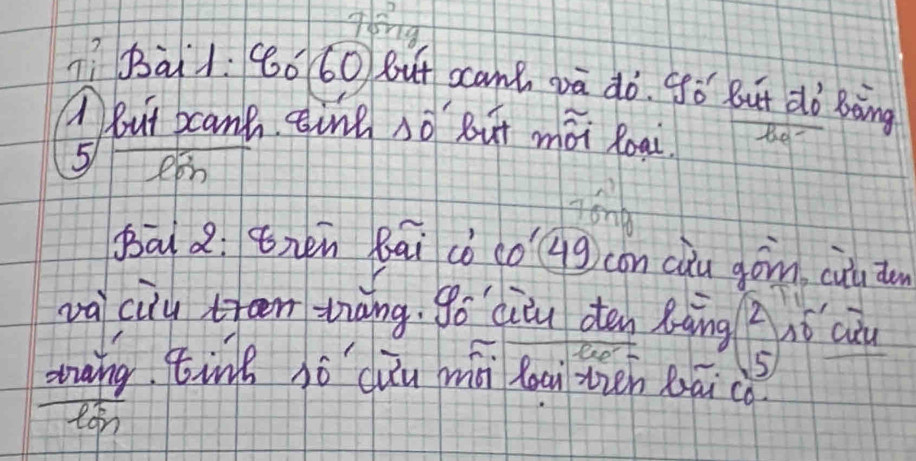 Tổng
Tỉ Bài 1: Có 60 bút xanh và đỏ. Số bút đỏ bằng
bé
1/5 bút xanh. Tính số bút mỗi loại.
lớn
Tổng
Bài 2: Trên bãi cỏ có 49 con cừu gồm cừu đen
và cừu trắng. Số cừu đen bằng 2/5 số cừu
Tỉ
bé
trắng. Tính số cừu mỗi loại trên bãi cỏ.
lớn